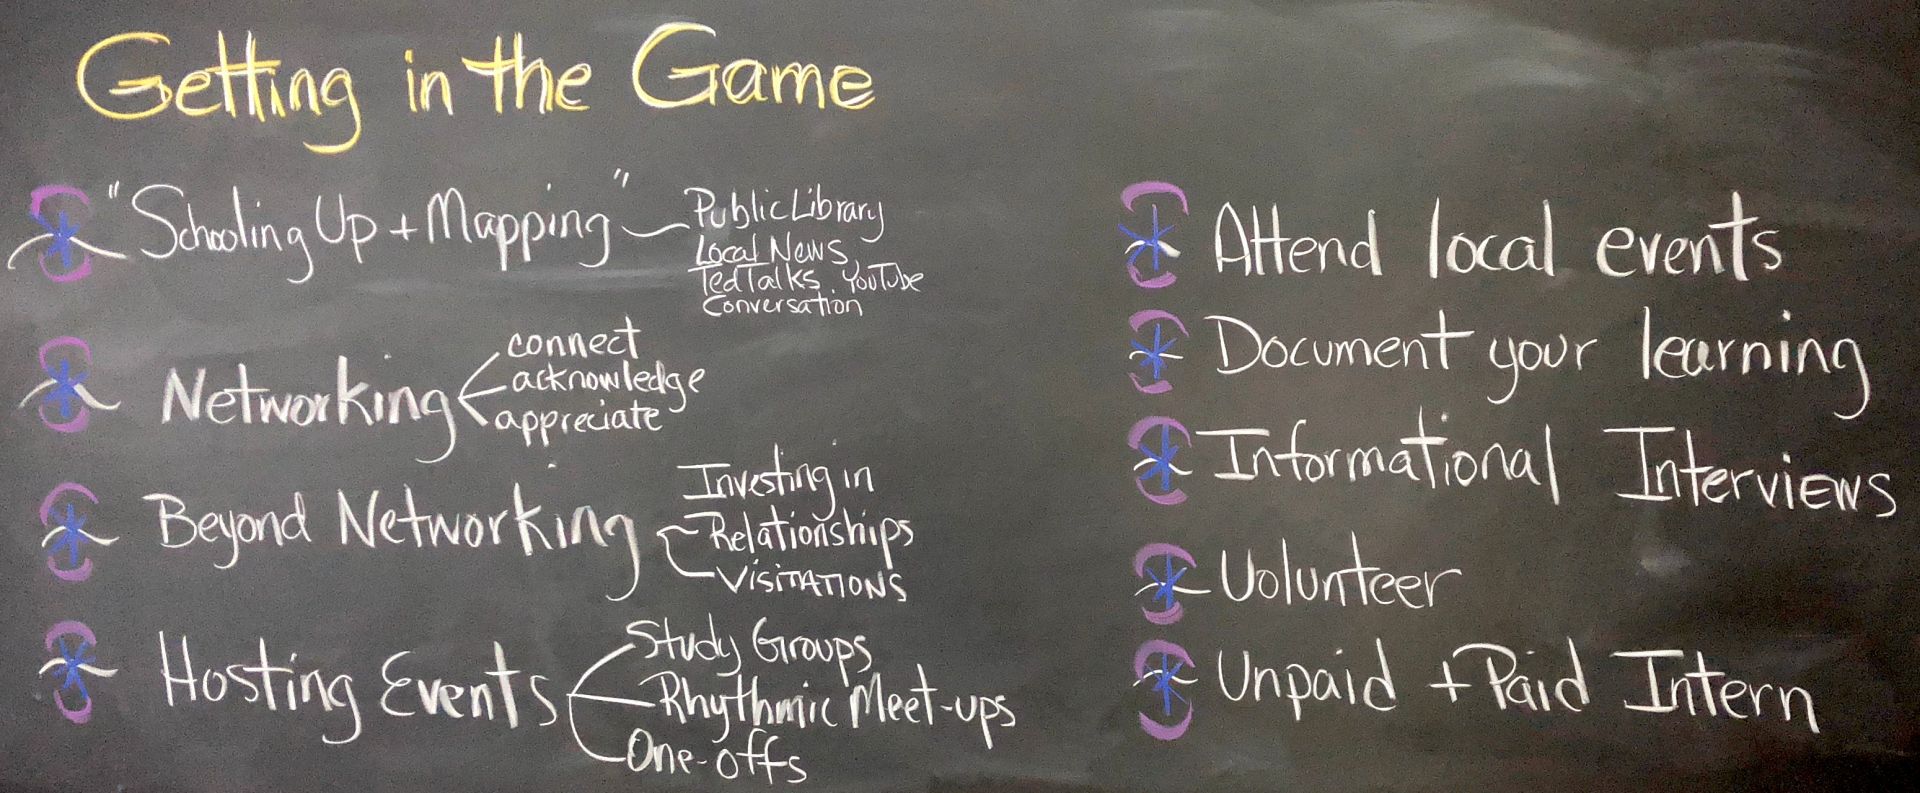 Getting in the Game
"Schooling Up + Mapping"
Public Library
Local News,
TedTalks, YouTube
Conversation
Networking
connect
acknowledge
appreciate
Beyond Networking
Investing in
Relationships
VISITATIONS
Hosting Events
Study Groups
Rhythmic Meet-ups
One-offs
Attend local events
Document your learning
Informational Interviews
Volunteer
Unpaid + Paid Intern